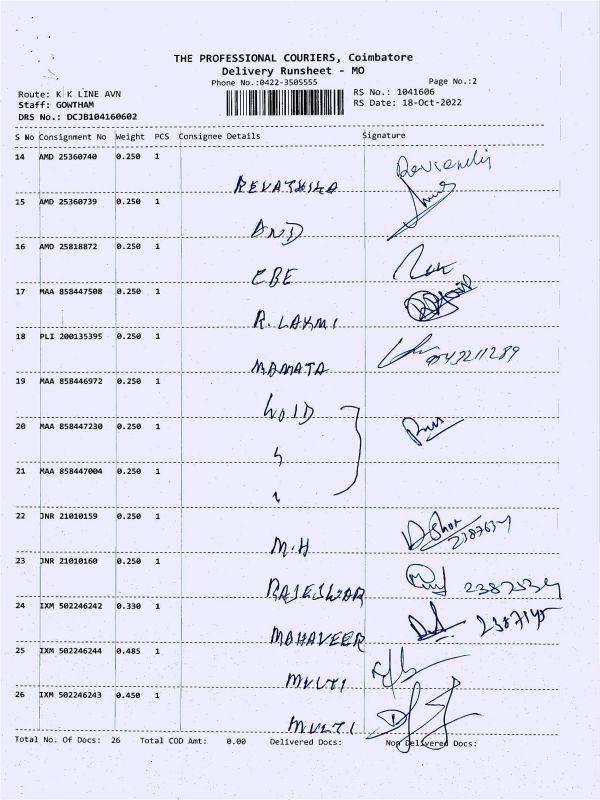 THE PROFESSIONAL COURIERS, Coimbatore
Delivery Runsheet - MO
Phone No.:0422-3505555
Page No.:2
Route: K K LINE AVN
RS No.: 1041606
Staff: GOWTHAM
RS Date: 18-Oct-2022
DRS No.: DCJB104160602
S No Consignment No Weight PCS Consignee Details Signature
14 AMD 25360740 0.250 1
15 AMD 25360739 0.250 1
AND
16 AMD 25818872 0.250 1
CBE
17 MAA 858447508 0.250 1
R. LAXMI
18 PLI 200135395 0.250 1
MAMATA 9543211289
19 MAA 858446972 0.250 1
20 MAA 858447230 0.250 1
21 MAA 858447004 0.250 1
22 JNR 21010159 0.250 1
M.H
23 JNR 21010160 0.250 1
RAJESWAR
24 IXM 502246242 0.330 1
MAHAVEER
25 IXM 502246244 0.485 1
MULTI
26 IXM 502246243 0.450 1
MULTI
Total No. Of Docs: 26 Total COD Amt: 0.00 Delivered Docs: Non Delivered Docs: